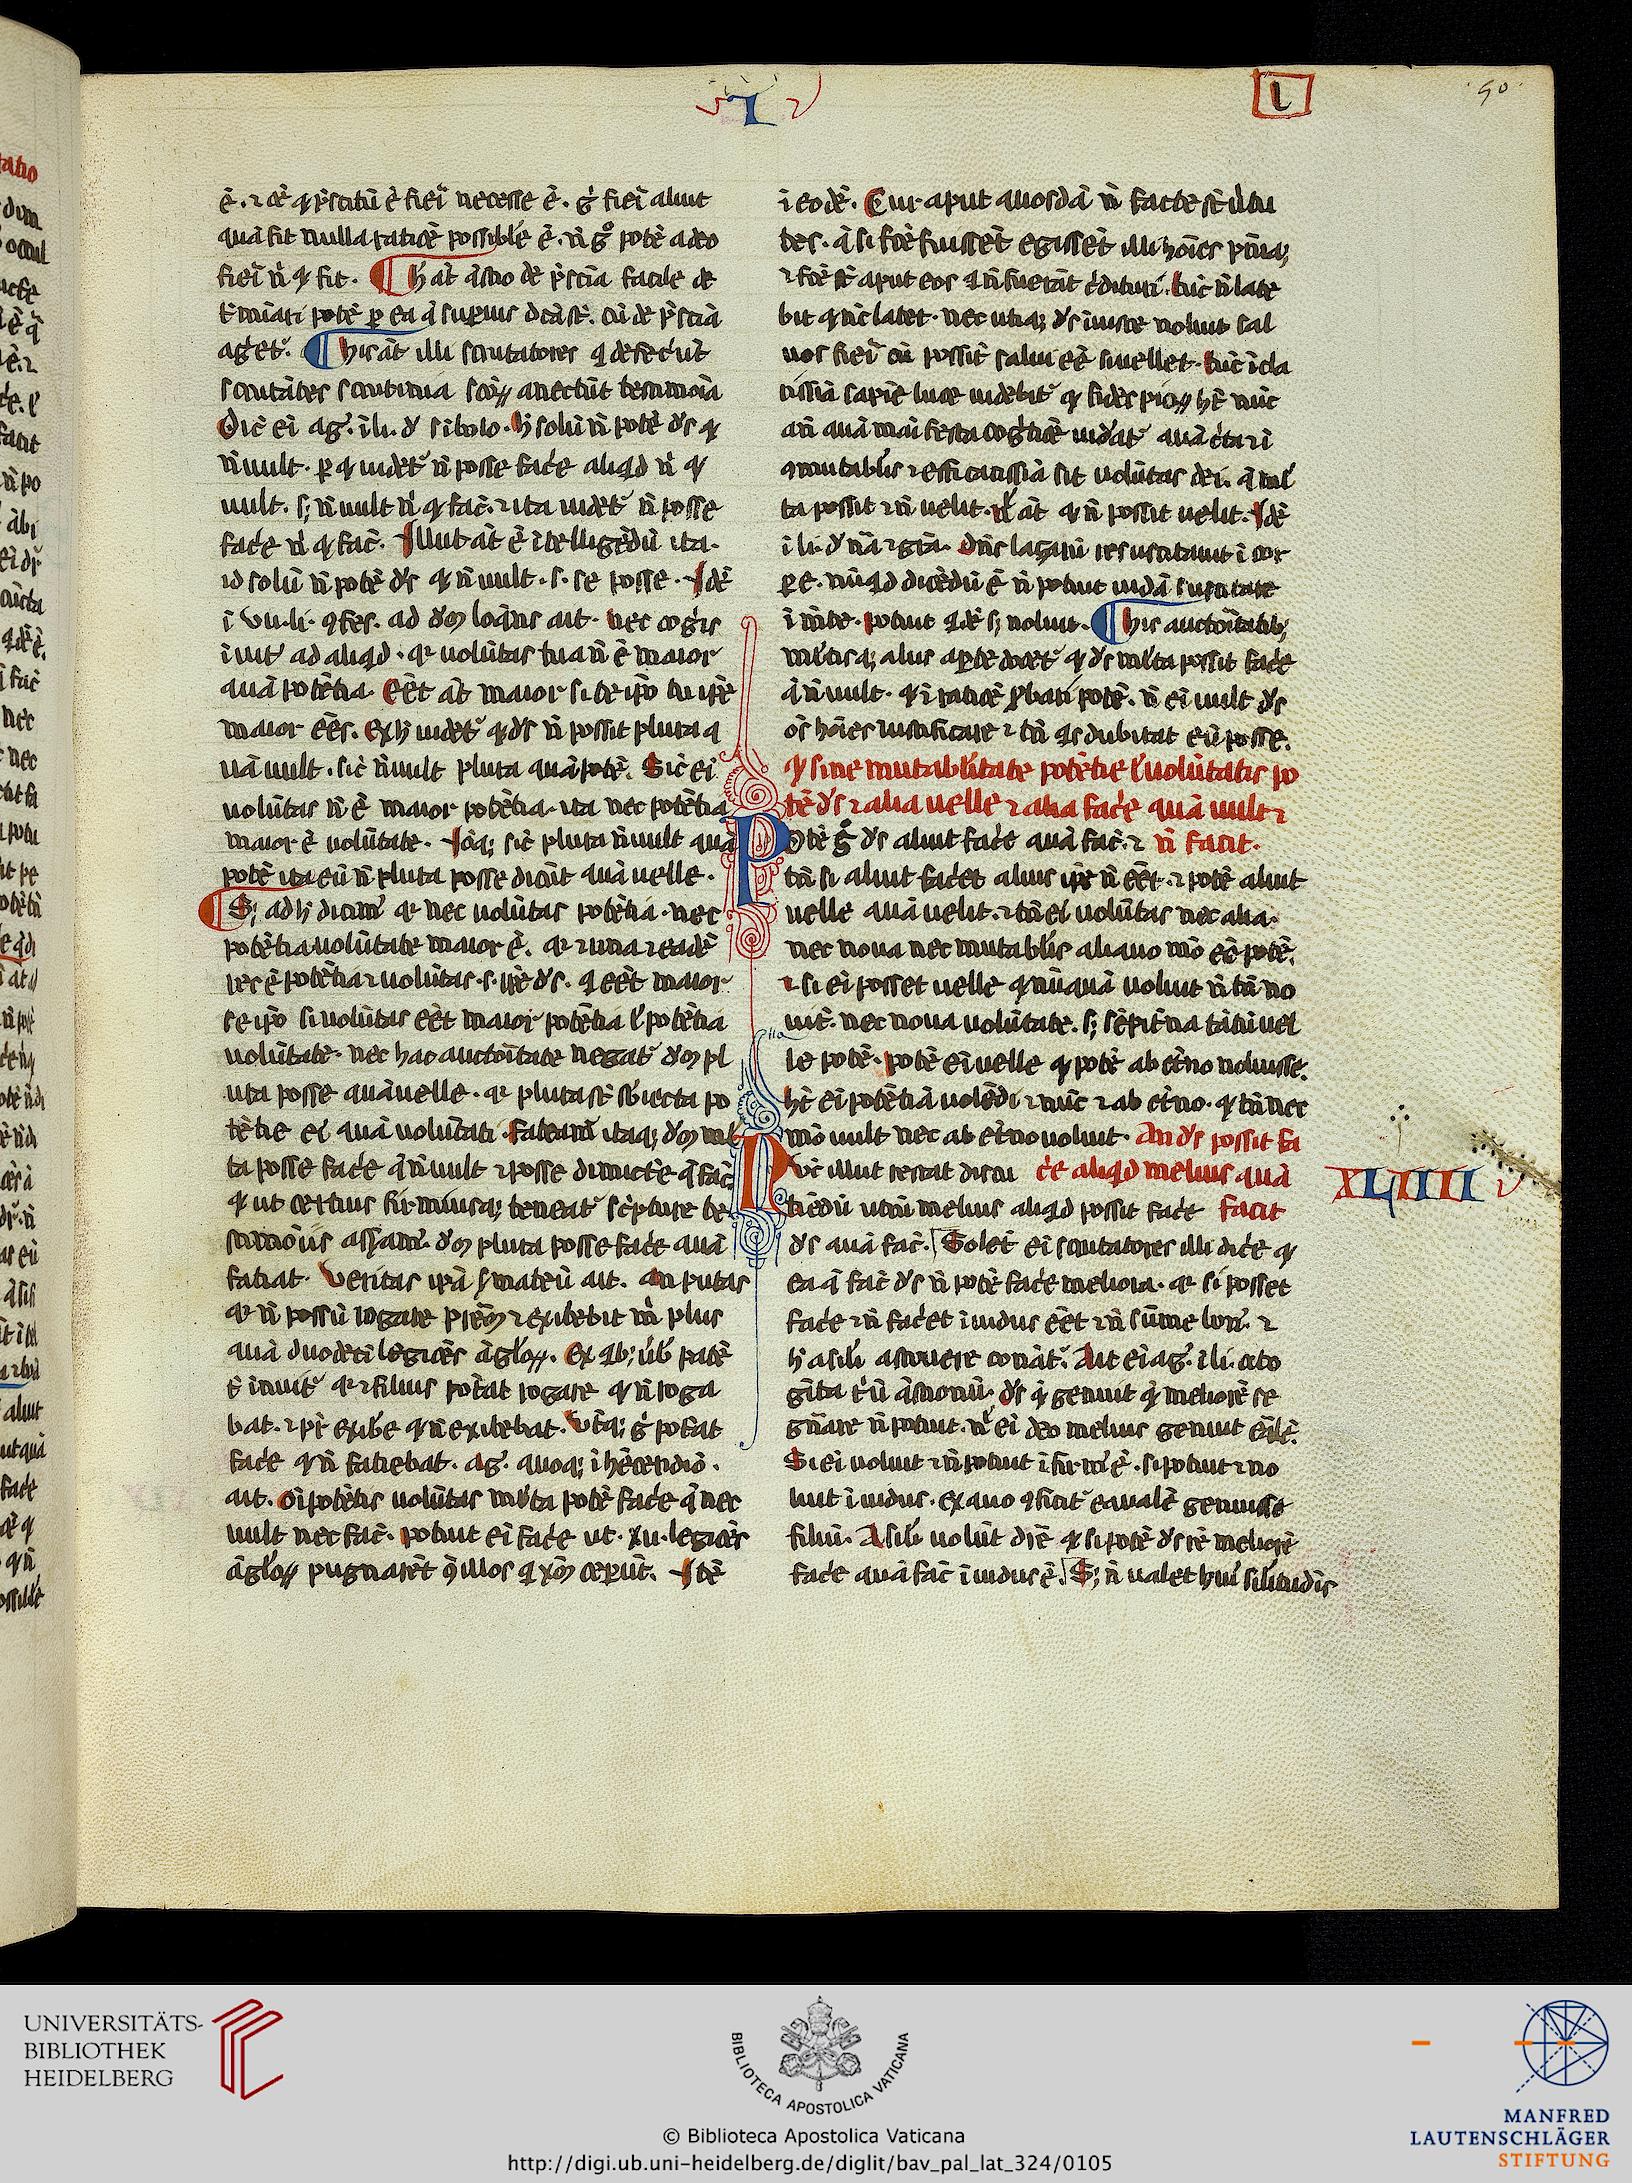 L
L
50
ē. ⁊ oē qd p̄scitū ē fieri necesse ē. ḡ fieri aliut
quā fit nulla ratiōe possibile ē. n̄ ḡ potē a deo
fieri n̄ qd fit. Hāc āt q̄stio de p̄scīa facile de
t̄minari potē per ea q̄ superius dc̄a sт̄. cū de p̄scīa
aget̄. His āt illi scrutatores q̄ defecer̄ūt
scrutātes scrutinia sc̄orum anectūt testimōia
Dic̄ ei aḡ. i li. d̄ sībolo. hͦ solū n̄ potē ds̄ qd
n̄ vult. per qd videt̄ n̄ posse fac̄e aliq̄d n̄ qd
vult. s; n̄ vult n̄ qd fac̄. ⁊ ita videt̄ n̄ posse
fac̄e n̄ qd fac̄. Illut āt ē ītelligēdū ita.
id solū n̄ potē ds̄ qd n̄ vult. s. se posse. Idē
ī vii. li. ꝯfes. ad dm̄ loq̄ns ait. nec cogis
īvit̄ ad aliq̄d. qr̄ volūtas tua n̄ ē maior
quā potētia. Eēt āt maior si te ip̄o tu ip̄e
maior eēs. Ex hͦ videt̄ qd ds̄ n̄ possit plura q
uā vult. sic̄ n̄ vult plura quā potē. Sic̄ ei
volūtas n̄ ē maior potētia. ita nec potētia
maior ē volūtate. Ioq; sic̄ plura n̄ vult quā
potē ita eū n̄ plura posse dicūt quā velle.
S; ad hͦ dicim̄ qr̄ nec volūtas potētia. nec
potētia volūtate maior ē. qr̄ ⁊ una ⁊ eadē
res ē potētia ⁊ volūtas. s. ip̄e ds̄. q̄ eēt maior
se ip̄o si volūtas eēt maior potētia l̄ potētia
volūtate. nec hac auctōitate negat̄ dm̄ pl
ura posse quā velle. qr̄ plura sт̄ sb̄iecta po
tētie ei quā volūtati. fateam̄ itaq; dm̄ ml̄
ta posse fac̄e q̄ n̄ vult ⁊ posse dimictere q̄ fac̄
qd ut certius firmiusq; teneat̄ sc̄pture te
stimōiis assam̄. dm̄ plura posse fac̄e quā
faciat. Veritas ip̄a s̄ mateū ait. An putas
qr̄ n̄ possū rogare pr̄em ⁊ exibebit m̄ plus
quā duodeci legiōes āglorum. Ex q̄b; v̄b patē
т̄ ināit̄ qr̄ ⁊ filius potat rogare qd n̄ roga
bat. ⁊ pr̄ exib̄e qd n̄ exibebat. Vtq; ḡ potat
fac̄e qd n̄ faciebat. aḡ. quoq; i h̄ēcridiō.
ait. Oīpotētis volūtas ml̄ta potē fac̄e q̄ nec
vult nec fac̄. potuit ei fac̄e ut. xii. legiōes
āglorum pugnarēt ꝯ illos q̄ xm̄ ceperūt. Itē
ī eodē. Cur aput quosdā n̄ facte sт̄ v̄tu
tes. q̄ si fc̄e fuissēt egissēt illi hoīes pn̄ia;
⁊ fc̄e sт̄ aput eos q̄ n̄ fuerāt c̄dituri. tūc n̄ late
bit qd nc̄ latet. nec utiq; ds̄ iniuste noluit sal
uos fieri cū possēt salui eē si vellet. tūc ī cla
rissīa sapīe luce videbit̄ qd fides piorum hē nūc
an̄ quā maīfesta cogītiōe vidat̄ quā c̄ta ⁊ ī
ꝯmutabl̄is ⁊ efficacissīa sit volūtas dei. q̄ ml̄
ta possit ⁊ n̄ velit. nl̄ āt qd n̄ possit velit. Idē
ī li. d̄ nā ⁊ gr̄a. Dn̄s laҫaru resuscitauit ī cor
pe. nūq̄d dicēdū ē n̄ potuit iudā suscitare
ī mēte. potuit q̄dē s; noluit. His auctoītatib;
ml̄tisq; aliis ap̄te docet̄ qd ds̄ ml̄ta possit fac̄e
q̄ n̄ vult. qd ⁊ ratiōe ꝓbari potē. n̄ ei vult ds̄
oēs hoīes iustificare ⁊ tn̄ q̄s dubitat eū posse.
qd sine mutabilitate potētie l̄ volūtatis po
tē ds̄ ⁊ alia velle ⁊ alia fac̄e quā vult ⁊
n̄ facit.
Potē ḡ ds̄ aliut fac̄e quā fac̄. ⁊
tn̄ si aliut facēt alius ip̄e n̄ eēt. ⁊ potē aliut
velle quā velit. ⁊ tn̄ ei volūtas nec alia.
nec noua nec mutabl̄is aliquo mō eē potē.
⁊ si ei posset velle qd nūquā voluit n̄ tn̄ no
uit. nec noua volūtate. s; sēpit̄na tātū vel
le potē. potē ei velle qd potē ab et̄no voluisse.
hē ei potētiā volēdi ⁊ nūc ⁊ ab et̄no. qd tn̄ nec
mō vult nec ab et̄no voluit. An ds̄ possit fa
c̄e aliq̄d melius quā
facit
XLIIII
Nūc illut restat discu
tiēdū utrū melius aliq̄d possit fac̄e
ds̄ quā fac̄. Solēt ei scrutatores illi dic̄e qd
ea q̄ fac̄ ds̄ n̄ potē fac̄e meliora. qr̄ si posset
fac̄e ⁊ n̄ fac̄et īvidus eēt ⁊ n̄ sūme bon̄. ⁊
hͦ a sil̄i astruere conāt̄. Ait ei aḡ. i li. octo
gīta t̄iū q̄stionū. ds̄ q̄ genuit q̄ meliorē se
gn̄are n̄ potuit. nl̄ ei deo melius genuit eq̄lē.
Si ei voluit ⁊ n̄ potuit īfirm̄ ē. si potuit ⁊ no
luit īvidus. ex quo ꝯficit̄ equalē genuisse
filiū. A sil̄i volūt dic̄e qd si potē ds̄ rē meliorē
fac̄e quā fac̄ īvidus ē. S; n̄ valet hui siłitudis
UNIVERSITÄTS-
BIBLIOTHEK
HEIDELBERG
BIBLIOTECA APOSTOLICA VATICANA
© Biblioteca Apostolica Vaticana
http://digi.ub.uni-heidelberg.de/diglit/bav_pal_lat_324/0105
MANFRED
LAUTENSCHLÄGER
STIFTUNG